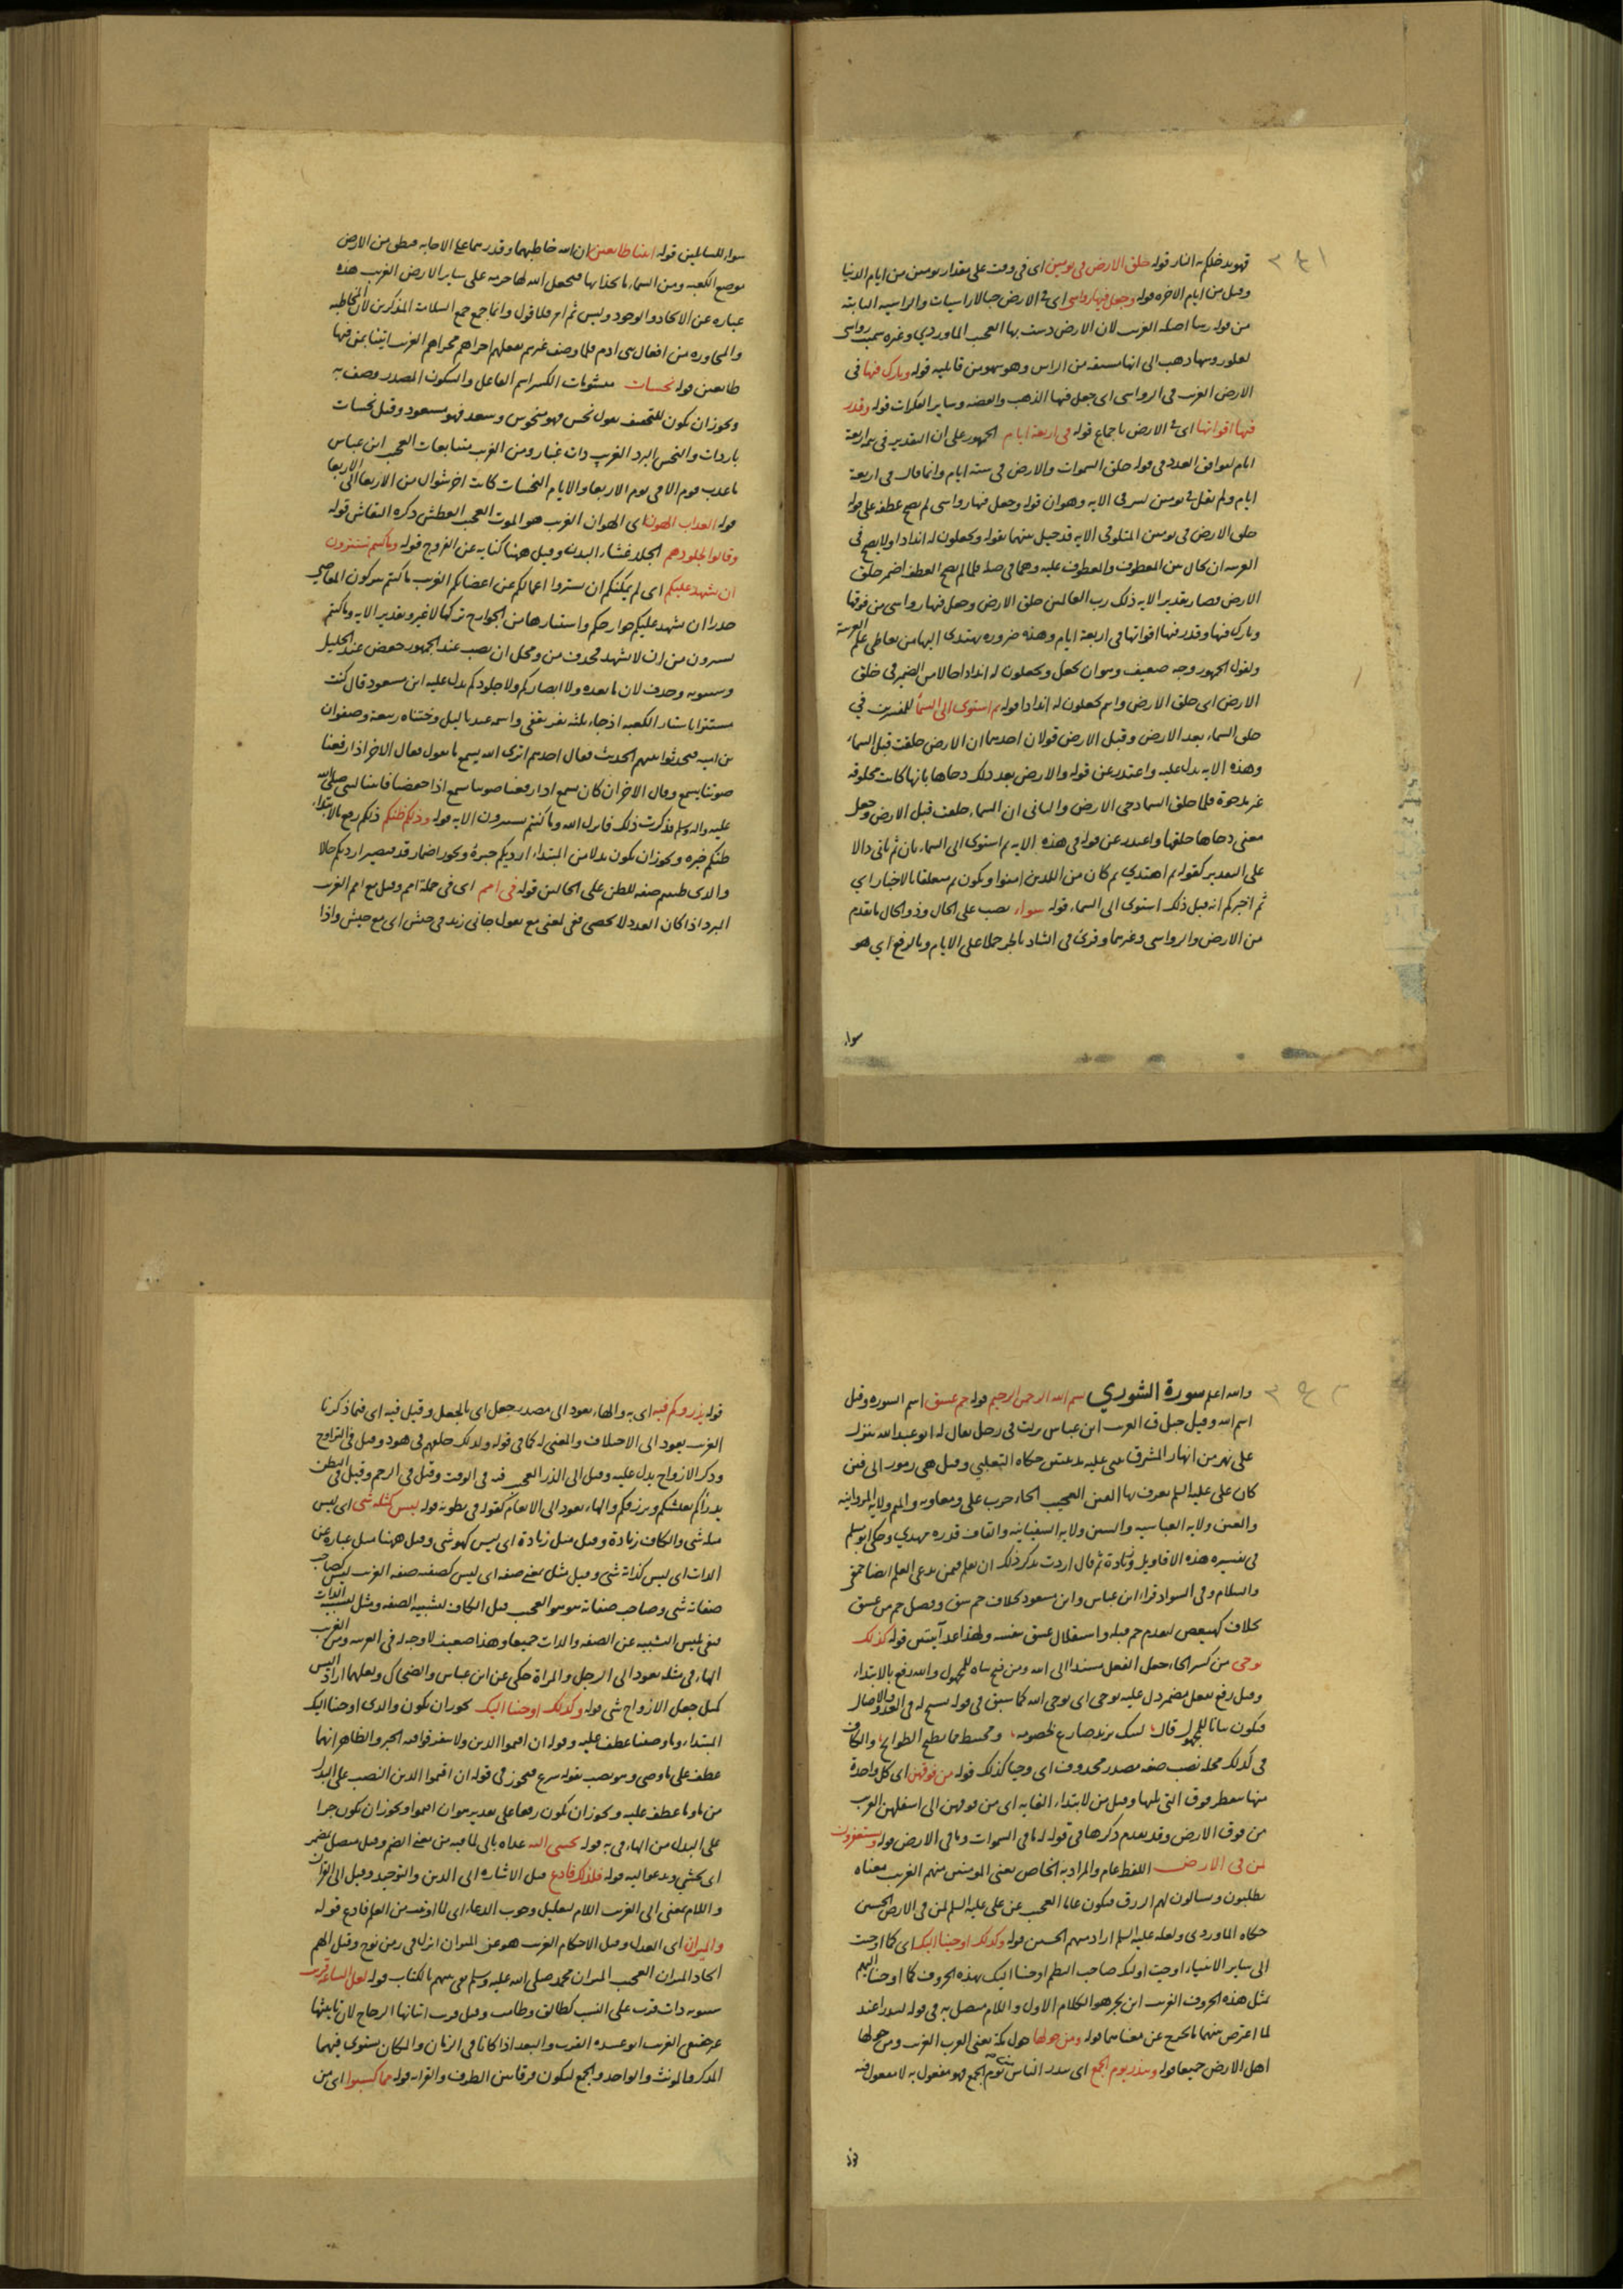 فهو يدخلكم النار قوله خلق الارض في يومين اى في وقت على مقدار يومين من ايام الدنيا
وقيل من ايام الاخره قوله وجعل فيها رواسي اى في الارض جبالا راسيات والراسيه الثابته
من قوله رسا اصله الغريب لان الارض رست بها العجيب الماوردي وغيره سميت رواسى
لعلو روسها ذهب الى انها مشتقه من الراس وهو سهو من قايليه قوله وبارك فيها فى
الارض الغريب فى الرواسى اى جعل فيها الذهب والفضه وساير الفلزات قوله وقدر
فيها اقواتها اى في الارض باجماع قوله في اربعة ايام الجمهور على ان التقدير في تتمة اربعة
ايام ليوافق العدد في قوله خلق السموات والارض في ستة ايام وانما قال في اربعة
ايام ولم يقل في يومين لسر في الايه وهو ان قوله وجعل فيها رواسى لم يصح عطفه على قوله
خلق الارض في يومين المتلو في الايه قد حيل بينهما بقوله وتجعلون له اندادا ولا يصح فى
العربيه ان يحال بين المعطوف والمعطوف عليه وهما في صلة فلما لم يصح العطف اضمر خلق
الارض فصار تقدير الايه ذلك رب العالمين خلق الارض وجعل فيها رواسى من فوقها
وبارك فيها وقدر فيها اقواتها في اربعة ايام وهذه ضروره يهتدى اليها من تعاطى علم العربية
ولقول الجمهور وجه ضعيف وهو ان تجعل وتجعلون له اندادا حالا من الضمير في خلق
الارض اى خلق الارض وانتم تجعلون له اندادا قوله ثم استوى الى السماء للمفسرين في
خلق السماء بعد الارض وقبل الارض قولان احدهما ان الارض خلقت قبل السماء
وهذه الايه تدل عليه واعتذر عن قوله والارض بعد ذلك دحاها بانها كانت مخلوقه
غير مدحوة فلما خلق السما دحى الارض والثانى ان السماء خلقت قبل الارض وجعل
معنى دحاها خلقها واعتذر عن قوله في هذه الايه ثم استوى الى السماء بان ثم تاتى دالا
على التقدير كقوله ثم اهتدي ثم كان من الذين امنوا ويكون ثم متعلقا بالاخبار اي
ثم اخبركم انه قبل ذلك استوى الى السماء قوله سواء نصب على الحال وذو الحال ما تقدم
من الارض والرواسى وغيرهما وقرئ فى الشاذ بالجر حملا على الايام وبالرفع اي هو
سواء
سواء للسائلين قوله اتينا طائعين ان الله خاطبهما وقدرهما على الاجابه فنطق من الارض
موضع الكعبه ومن السماء ما بحذايها فجعل الله لها حرمه على ساير الارض الغريب هذه
عباره عن الاتحاد والوجود وليس ثم امر فلا قول وانما جمع جمع السلامة المذكرين لان المخاطبه
والمحاوره من افعال بنى ادم فلما وصف غيرهم بفعلهم اجراهم مجراهم الغريب اتينا بمن فيها
طائعين قوله نحسات مشئومات الكسر اسم الفاعل والسكون المصدر وصف به
ويجوز ان يكون للتخفيف يقول نحس فهو منحوس وسعد فهو مسعود وقيل نحسات
باردات والنحس البرد الغريب ذات غبار ومن الغريب متتابعات العجيب ابن عباس
ما عذب قوم الا في يوم الاربعا والايام النحسات كانت اخر شوال من الاربعا الى الاربعا
قوله العذاب الهون اى الهوان الغريب هو الموت العجيب العطش ذكره النقاش قوله
وقالوا لجلودهم الجلد غشاء البدن وقيل ههنا كنايه عن الفروج قوله وما كنتم تستترون
ان يشهد عليكم اى لم يمكنكم ان تستروا اعمالكم عن اعضائكم الغريب ما كنتم تتركون المعاصي
حذرا ان يشهد عليكم جوارحكم واستتارها من الجوارح تركها لا غير وتقدير الايه وما كنتم
تستترون من ان لا يشهد فحذف من ومحل ان نصب عند الجمهور خفض عند الخليل
وسيبويه وحذف لان ما بعده ولا ابصاركم ولا جلودكم يدل عليه ابن مسعود قال كنت
مستترا باستار الكعبه اذ جاء ثلثه نفر ثقفى واسمه عبد ياليل وختناه ربيعة وصفوان
بن اميه فتحدثوا بينهم الحديث فقال احدهم اترى الله يسمع ما نقول فقال الاخر اذا رفعنا
صوتنا يسمع وقال الاخر ان كان يسمع اذا رفعنا صوتنا سمع اذا خفضنا فاتيت النبى صلى الله
عليه واله وسلم فذكرت ذلك فانزل الله وما كنتم تستترون الايه قوله وذلكم ظنكم ذلكم رفع بالابتداء
ظنكم خبره ويجوز ان يكون بدلا من المبتداء ارديكم خبره ويجوز اضمار قد فيصير ارديكم حالا
والذى ظننتم صفه للظن على الحالين قوله في امم اى في جملة امم وقيل مع امم الغريب
المبرد اذا كان العدد لا يحصى ففى بمعنى مع يقول جاني زيد في جيش اى مع جيش واذا
والله اعلم سورة الشوري بسم الله الرحمن الرحيم قوله حم عسق اسم السوره وقيل
اسم الله وقيل جبل ق الغريب ابن عباس نزلت في رجل يقال له ابو عبد الله ينزل
على نهر من انهار المشرق يبنى عليه مدينتين حكاه الثعلبي وقيل هى رموز الى فتن
كان على عليه السلم يعرف بها الفتن العجيب الحاء حرب على ومعاويه والميم ولاية المروانيه
والعين ولايه العباسيه والسين ولايه السفيانيه والقاف قدره مهدي وحكى ابو مسلم
في تفسيره هذه الاقاويل وزيادة ثم قال اردت بذكر ذلك ان يعلم فيمن يدعى العلم ايضا حمقى
والسلام وفى السواد قراءة ابن عباس وابن مسعود بخلاف حم سق وفصل حم من عسق
بخلاف كهيعص لتقدم حم قبله واستقلال عسق بنفسه ولهذا عدا آيتين قوله كذلك
يوحى من كسر الحاء جعل الفعل مسندا الى الله ومن فتح بناه للمجهول والله رفع بالابتداء
وقيل رفع بفعل مضمر دل عليه يوحى اى يوحى الله كما سبق في قوله يسبح له فيها بالغدو والاصال
فيكون بيانا للمجهول قال ليبك يزيد ضارع لخصومه ومختبط مما تطيح الطوائح والكاف
فى كذلك محله نصب صفه مصدر محذوف اى وحيا كذلك قوله من فوقهن اى كل واحدة
منها تتفطر فوق التى تليها وقيل من لابتداء الغايه اى من فوقهن الى اسفلهن الغريب
من فوق الارض وقد تقدم ذكرها في قوله له ما في السموات وما في الارض قوله ويستغفرون
لمن فى الارض اللفظ عام والمراد به الخاص يعنى المومنين منهم الغريب معناه
يطلبون ويسالون لهم الرزق فيكون عاما العجيب عن على عليه السلم لمن في الارض الحسين
حكاه الماوردى ولعله عليه السلم اراد منهم الحسين قوله وكذلك اوحينا اليك اى كما اوحيت
الى ساير الانبياء اوحيت اليك صاحب النظم اوحينا اليك بهذه الحروف كما اوحينا اليهم
بمثل هذه الحروف الغريب ابن بحر هو الكلام الاول واللام متصل به في قوله لتنذر اعتذر
لما اعترض بينهما ما يخرج عن معناهما قوله ومن حولها حول مكة يعنى العرب الغريب ومن حولها
اهل الارض جميعا قوله وتنذر يوم الجمع اى تنذر الناس يوم الجمع فهو مفعول به لا مفعول فيه
قوله
قوله يذروكم فيه اى به والهاء يعود الى مصدر جعل اى بالجعل وقيل فيه اى فيما ذكرنا
الغريب يعود الى الاختلاف والمعنى له كما فى قوله ولذلك خلقهم في هود وقيل في التزاوج
وذكر الازواج يدل عليه وقيل الى الذرء العجيب فيه فى الوقت وقيل في الرحم وقيل في البطن
يذرأكم يعيشكم ويرزقكم والهاء يعود الى الانعام كقوله في بطونه قوله ليس كمثله شى اى ليس
مثله شى والكاف زيادة وقيل مثل زيادة اى ليس كهو شى وقيل ههنا مثل عباره عن
الذات اى ليس كذاته شى وقيل مثل بمعنى صفه اى ليس كصفته صفه الغريب ليس كصاحب
صفاته شى وصاحب صفاته هو هو العجيب قيل الكاف لتشبيه الصفه ومثل لتشبيه الذات
فنفى بليس الشبيه عن الصفه والذات جميعا وهذا ضعيف لا وجه له فى العربيه ومن الغريب
الهاء في مثله يعود الى الرجل والمراة حكى عن ابن عباس والضحاك ولعلهما ارادا ليس
كمثل جعل الازواج شى قوله وكذلك اوحينا اليك يجوز ان يكون والذى اوحينا اليك
المبتداء وما وصينا عطف عليه وقوله ان اقيموا الدين ولا تتفرقوا فيه الخبر والظاهر انهما
عطف على ما وصى وهو نصب بقوله شرع فيجوز فى قوله ان اقيموا الدين النصب على البدل
من ما وما عطف عليه ويجوز ان يكون رفعا على تقدير هو ان اقيموا ويجوز ان يكون جرا
على البدل من الهاء في به قوله يجتبى اليه عداه بالى لما فيه من معنى الضم وقيل متصل بمضمر
اى يجتبي ويدعو اليه قوله فلذلك فادع قيل الاشاره الى الدين والتوحيد وقيل الى القرآن
واللام بمعنى الى الغريب اللام لتعليل وجوب الدعاء اى لما اوتيت من العلم فادع قوله
والميزان اى العدل وقيل الاحكام الغريب هو عين الميزان انزل في زمن نوح وقيل الهم
اتخاذ الميزان العجيب الميزان محمد صلى الله عليه وسلم يقضى بينهم بالكتاب قوله لعل الساعة قريب
سيبويه ذات قرب على النسب كطالق وطامث وقيل قرب اتيانها الزجاج لان تانيثها
غير حقيقى الغريب ابو عبيده القريب والبعيد اذا كانا في الزمان والمكان يستوى فيهما
المذكر والمونث والواحد والجمع ليكون فرقا بين الظرف والقرابه قوله مما كسبوا اى من